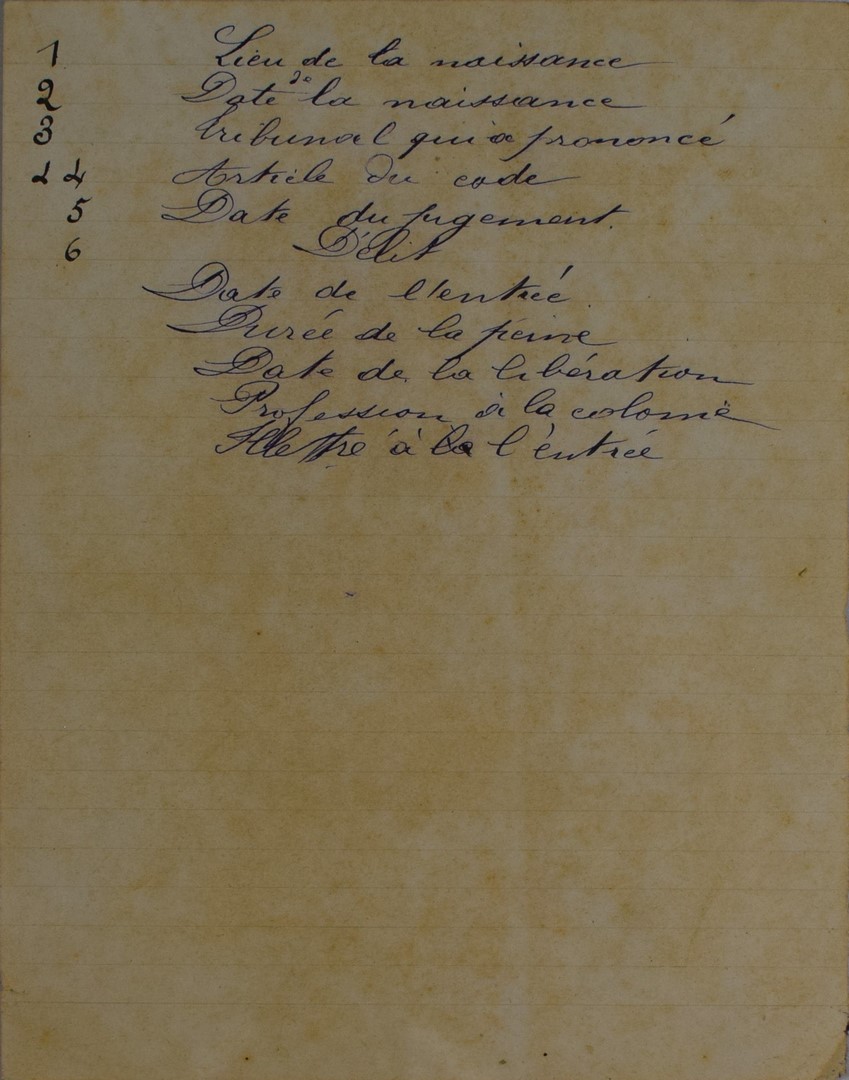 1 Lieu de la naissance
2 Date de la naissance
3 Tribunal qui a prononcé
4 Article du code
5 Date du jugement.
6 Délit
Date de l'entrée
Durée de la peine
Date de la libération
Profession à la colonie
Illettré à l'entrée